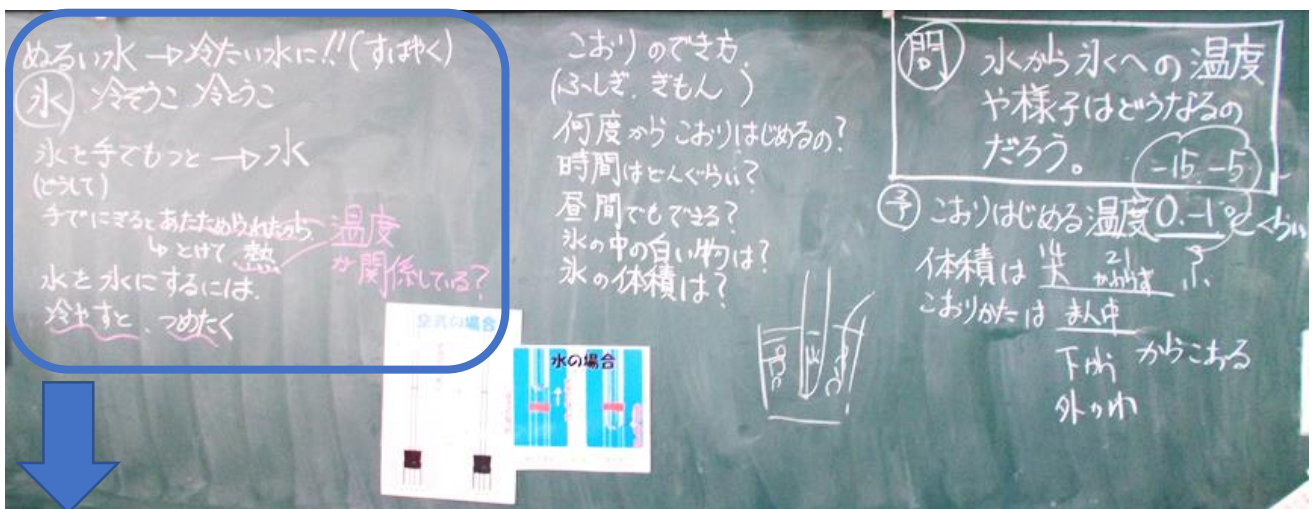 ぬるい水→冷たい水に!!(すばやく)
氷 冷ぞうこ 冷とうこ
氷を手でもつと→水
(どうして)
手でにぎるとあたためられたから
↳とけて 熱
温度
が関係している?
水を氷にするには、
冷やすと、つめたく
空気の場合
水の場合
こおりのでき方
(ふしぎ、ぎもん)
何度からこおりはじめるの?
時間はどんぐらい?
昼間でもできる?
氷の中の白い物は?
氷の体積は?
問 水から氷への温度
や様子はどうなるの
だろう。
-15 -5
予 こおりはじめる温度 0、-1℃ぐらい
体積は 14 大 21 かわらず ?
こおりかたは まん中
下から からこおる
外から